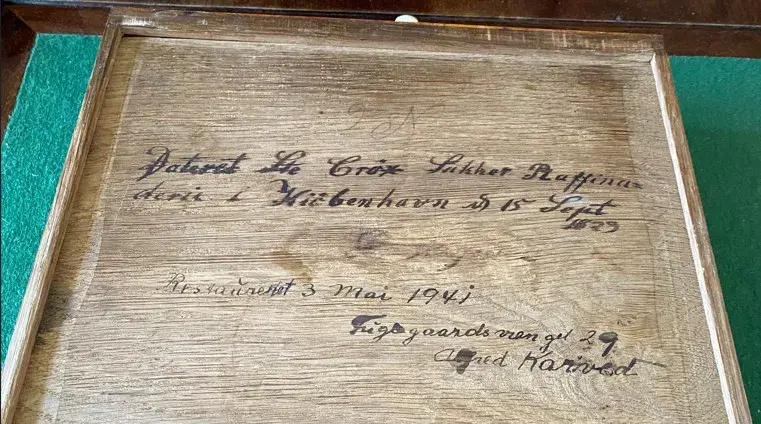 Dateret Ste Cröx Sukker Raffina=
derie i Kiöbenhavn d 15 Sept
1823
Restaureret 3 Mai 1941
gaardsvænget 29
Alfred Karved